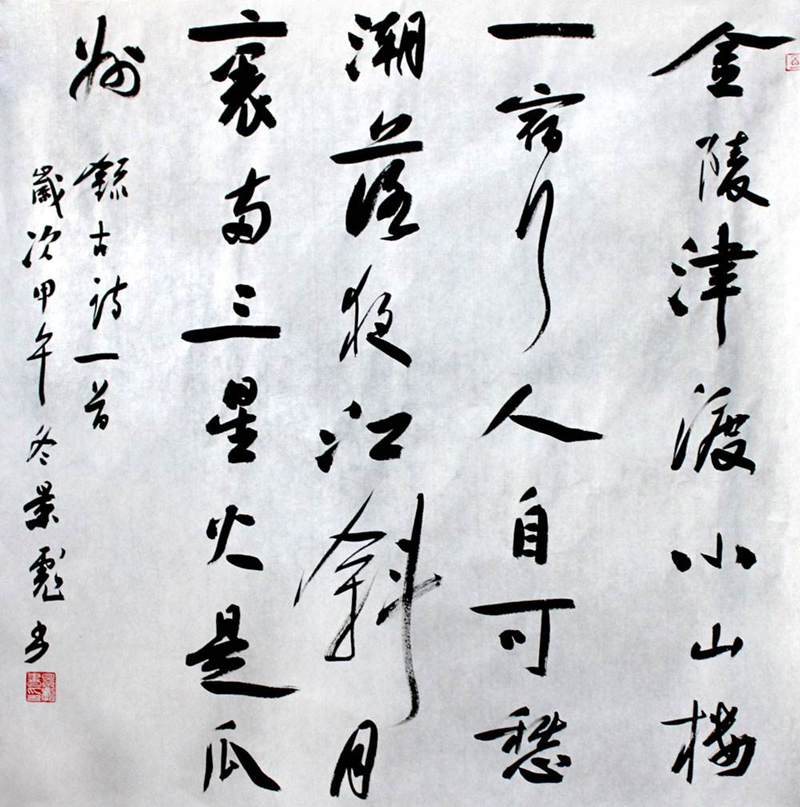 金陵津渡小山楼
一宿行人自可愁
潮落夜江斜月
裏两三星火是瓜
州 録古詩一首
歲次甲午冬景彪书